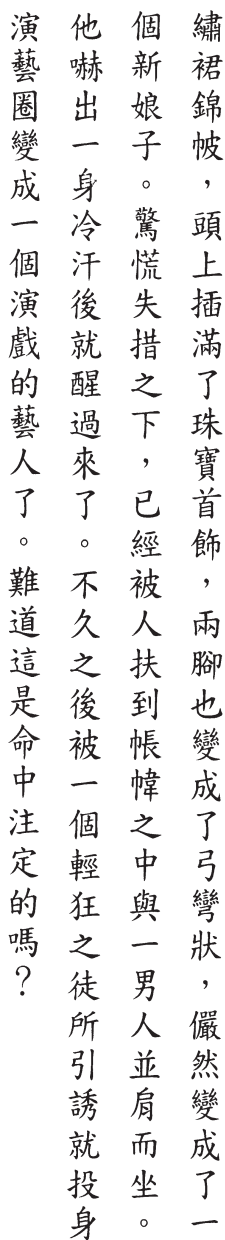 繡裙錦帔，頭上插滿了珠寶首飾，兩腳也變成了弓彎狀，儼然變成了一
個新娘子。驚慌失措之下，已經被人扶到帳幃之中與一男人並肩而坐。
他嚇出一身冷汗後就醒過來了。不久之後被一個輕狂之徒所引誘就投身
演藝圈變成一個演戲的藝人了。難道這是命中注定的嗎？